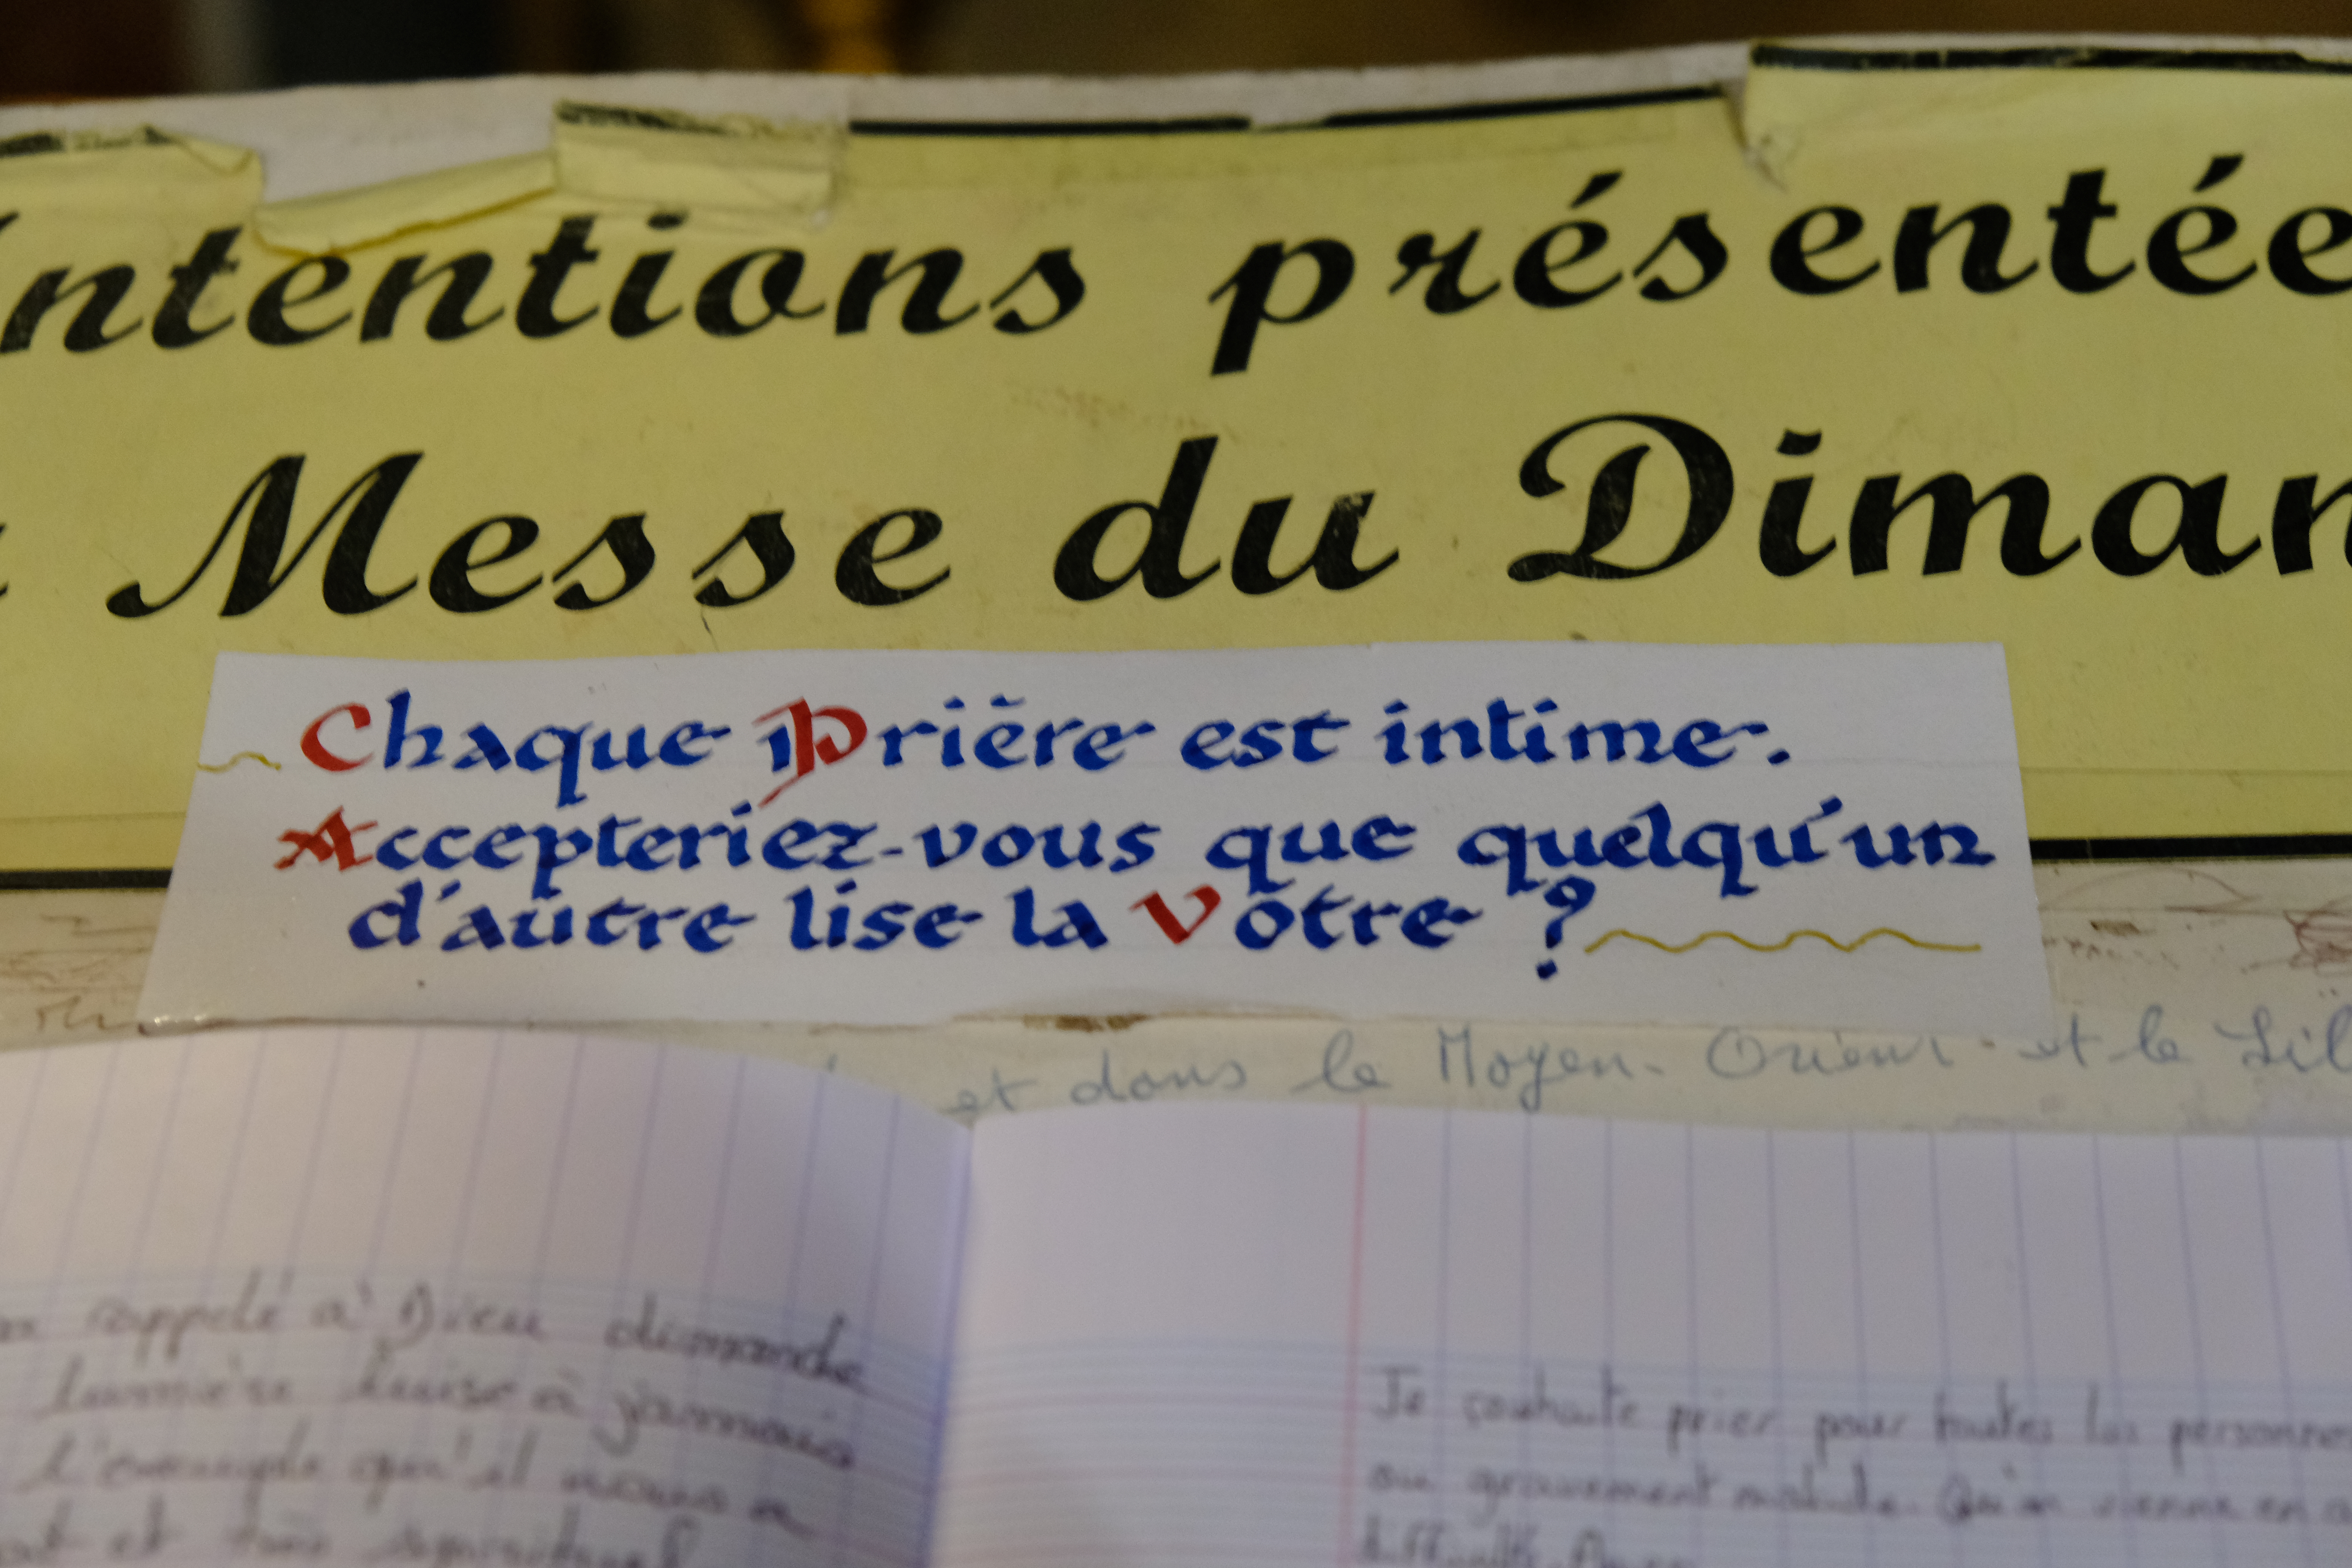 Intentions présentée
Messe du Diman
Chaque Prière est intime.
Accepteriez-vous que quelqu'un
d'autre lise la Vôtre ?
et dans le Moyen-Orient et le Lib
rappelé à Dieu dimanche
lumière luise à jamais
l'exemple qu'il nous a
et très
Je souhaite prier pour toutes les personnes
ou gravement malade. Qu'on vienne en